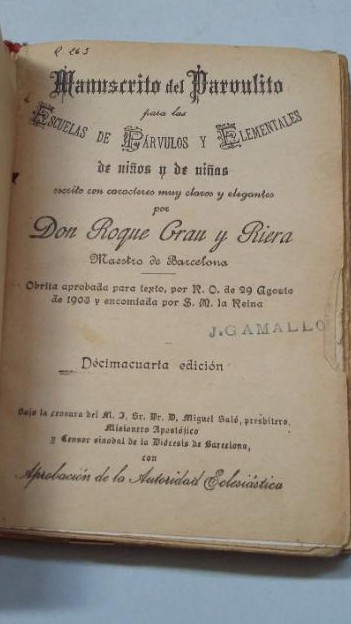 R. 263
Manuscrito del Parvulito
para las
ESCUELAS DE PÁRVULOS Y ELEMENTALES
de niños y de niñas
escrito con caracteres muy claros y elegantes
por
Don Roque Grau y Riera
Maestro de Barcelona
Obrita aprobada para texto, por R. O. de 29 Agosto
de 1903 y encomiada por S. M. la Reina
J. GAMALLO
Décimacuarta edición
Bajo la censura del M. I. Sr. Dr. D. Miguel Saló, presbítero,
Misionero Apostólico
y Censor sinodal de la Diócesis de Barcelona,
con
Aprobación de la Autoridad Eclesiástica